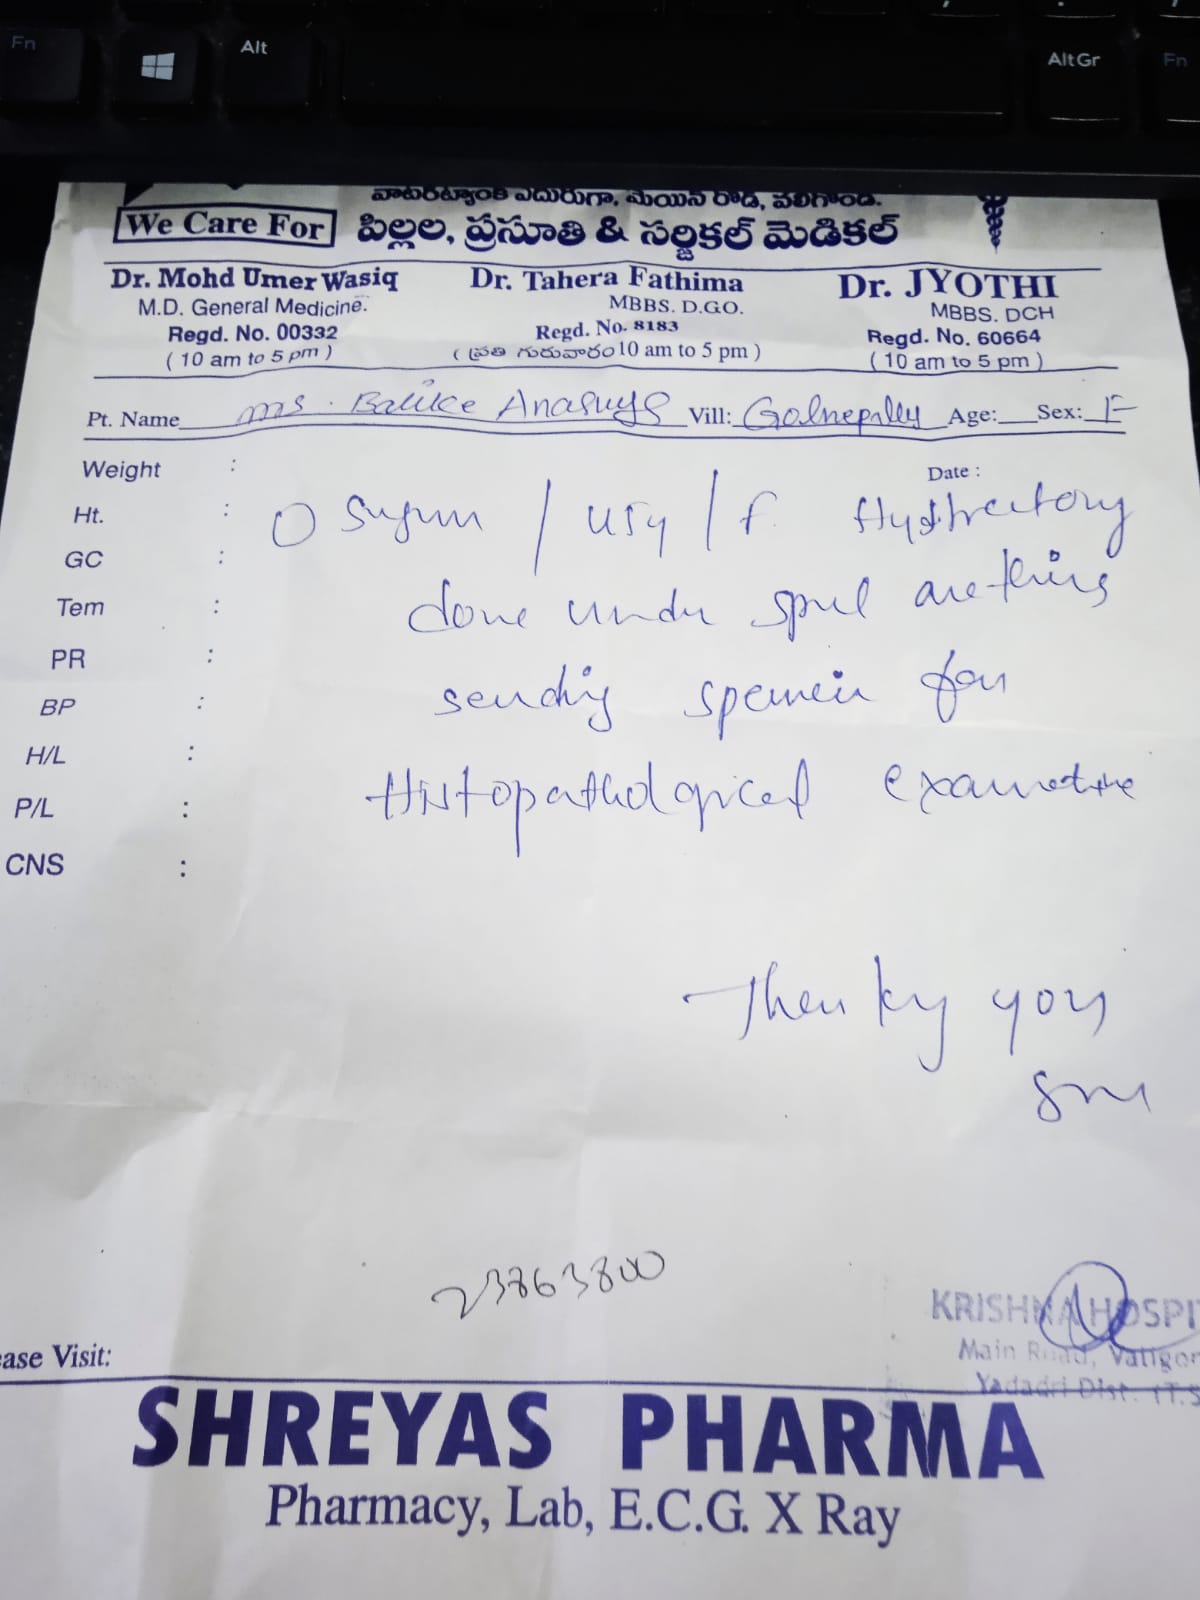 Fn Alt AltGr Fn
వాటరట్యాంకి ఎదురుగా, మెయిన్ రోడ్, వలిగొండ.
We Care For పిల్లల, ప్రసూతి & సర్జికల్ మెడికల్
Dr. Mohd Umer Wasiq Dr. Tahera Fathima Dr. JYOTHI
M.D. General Medicine. MBBS. D.GO. MBBS. DCH
Regd. No. 00332 Regd. No. 8183 Regd. No. 60664
( 10 am to 5 pm ) ( ప్రతి గురువారం 10 am to 5 pm ) ( 10 am to 5 pm )
Pt. Name ms. Balike Anasuya Vill: Golnepally Age: Sex: F
Weight : Date :
Ht. : / / F.
GC :
Tem : done under
PR :
BP : sending for
H/L :
P/L : Histopathological
CNS :
Thanky you
23763800
KRISHNA HOSPI
Main Road, Valigon
ease Visit: Yadadri Dist. (T.S
SHREYAS PHARMA
Pharmacy, Lab, E.C.G. X Ray